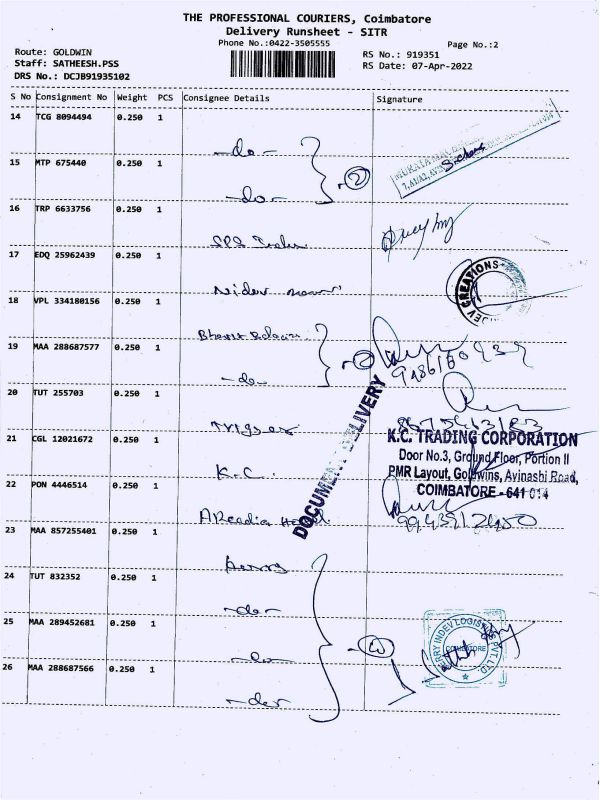 THE PROFESSIONAL COURIERS, Coimbatore
Delivery Runsheet - SITR
Phone No.:0422-3505555
Page No.:2
Route: GOLDWIN
RS No.: 919351
Staff: SATHEESH.PSS
RS Date: 07-Apr-2022
DRS No.: DCJB91935102
S No Consignment No Weight PCS Consignee Details Signature
14 TCG 8094494 0.250 1
-do-
15 MTP 675440 0.250 1
-do-
2
16 TRP 6633756 0.250 1
SPS
17 EDQ 25962439 0.250 1
CREATIONS
18 VPL 334180156 0.250 1
Bharat
19 MAA 288687577 0.250 1
-do-
2
20 TUT 255703 0.250 1
Trigger
DOCUMENT DELIVERY
21 CGL 12021672 0.250 1
K.C.
K.C. TRADING CORPORATION
Door No.3, Ground Floor, Portion II
PMR Layout, Goldwins, Avinashi Road,
COIMBATORE - 641 014
22 PON 4446514 0.250 1
Arcadia
9943912400
23 MAA 857255401 0.250 1
24 TUT 832352 0.250 1
-do-
25 MAA 289452681 0.250 1
-do-
26 MAA 288687566 0.250 1
-do-
INDEV LOGISTICS PVT. LTD.
COIMBATORE